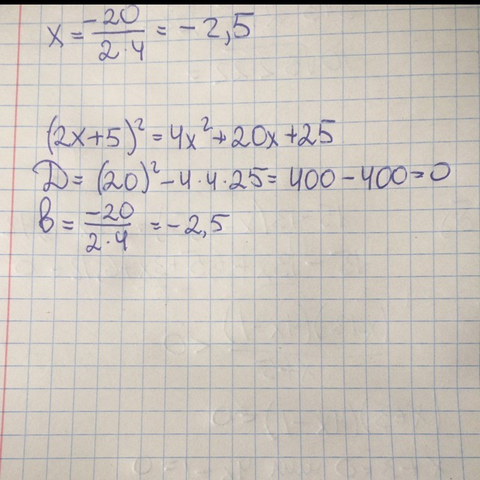 x = -20 / 2·4 = -2,5
(2x+5)² = 4x² + 20x + 25
D = (20)² - 4·4·25 = 400 - 400 = 0
b = -20 / 2·4 = -2,5